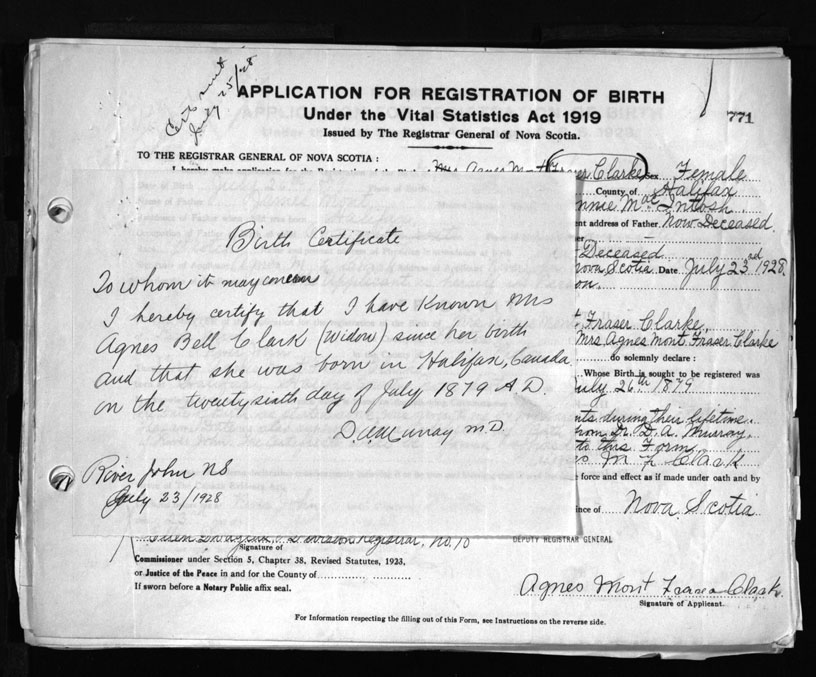 Cert sent
July 25/28
APPLICATION FOR REGISTRATION OF BIRTH
Under the Vital Statistics Act 1919
Issued by The Registrar General of Nova Scotia.
771
TO THE REGISTRAR GENERAL OF NOVA SCOTIA :
Fraser Clarke) Sex Female
County of Halifax
nnie MacIntosh
nt address of Father Now Deceased
Deceased
Nova Scotia Date July 23rd 1928.
on.
Fraser Clarke
Mrs Agnes Mont Fraser Clarke
do solemnly declare :
Whose Birth is sought to be registered was
July 26th 1879
nts during their lifetime
from Dr. D. A. Murray
to this Form
M F Clark
force and effect as if made under oath and by
ince of Nova Scotia
Birth Certificate
To whom it may concern
I hereby certify that I have known Mrs
Agnes Bell Clark (Widow) since her birth
and that she was born in Halifax, Canada
on the twentysixth day of July 1879 A.D.
D A Murray M.D.
River John NS
July 23/1928
Division Registrar, No. 10
DEPUTY REGISTRAR GENERAL
Signature of
Commissioner under Section 5, Chapter 38, Revised Statutes, 1923,
or Justice of the Peace in and for the County of
If sworn before a Notary Public affix seal.
Agnes Mont Fraser Clark
Signature of Applicant.
For Information respecting the filling out of this Form, see Instructions on the reverse side.